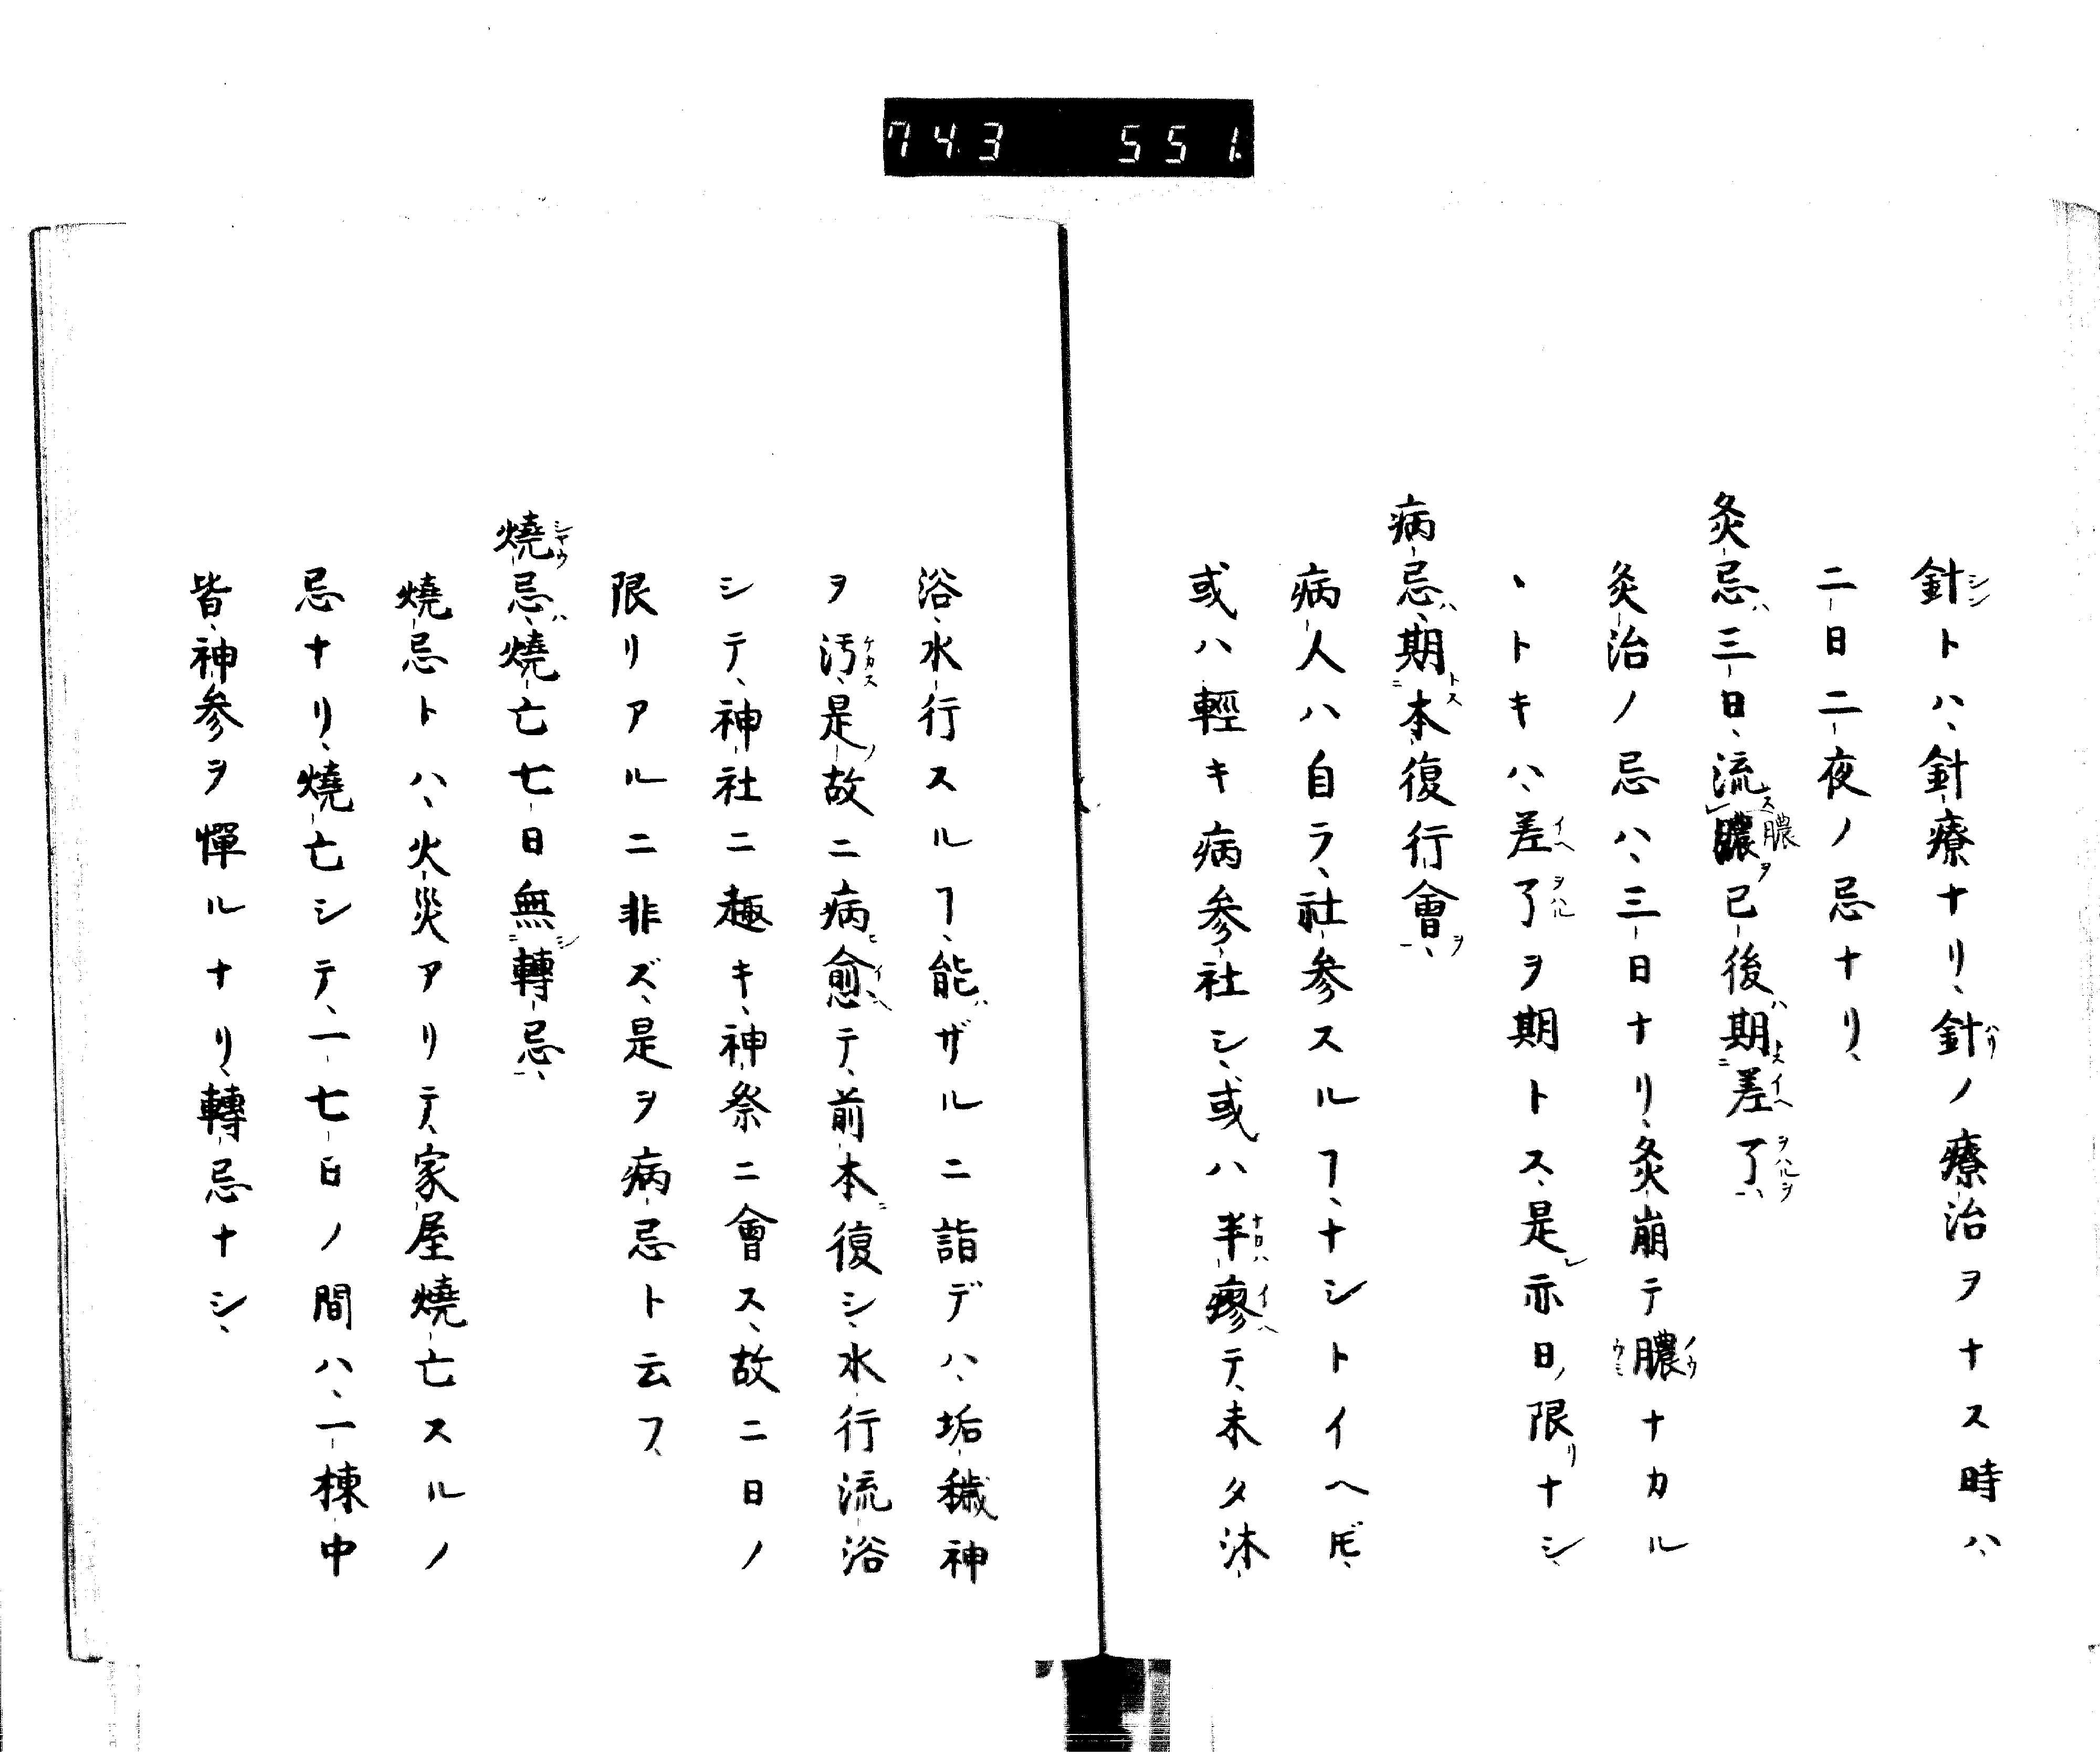 743 551
針トハ、針療ナリ、針ノ療治ヲナス時ハ、
二日二夜ノ忌ナリ、
灸忌ハ三日、流膿已後ハ期差了、
灸治ノ忌ハ、三日ナリ、灸崩テ膿ナカル
ヽトキハ、差了ヲ期トス、是亦日ノ限リナシ、
病忌ハ、期本復行會、
病人ハ自ラ、社参スルヿ、ナシトイヘ𪜈、
或ハ輕キ病参社シ、或ハ半瘳テ、未タ沐
浴、水行スルヿ、能ハザルニ詣デハ、垢穢神
ヲ汚、是故ニ病愈テ、前本復シ、水行流浴
シテ、神社ニ趣キ、神祭ニ會ス、故ニ日ノ
限リアルニ非ズ、是ヲ病忌ト云フ、
燒忌ハ、燒亡七日無轉忌、
燒忌トハ、火災アリテ、家屋燒亡スルノ
忌ナリ、燒亡シテ、一七日ノ間ハ、一棟中
皆、神参ヲ憚ルナリ、轉忌ナシ、